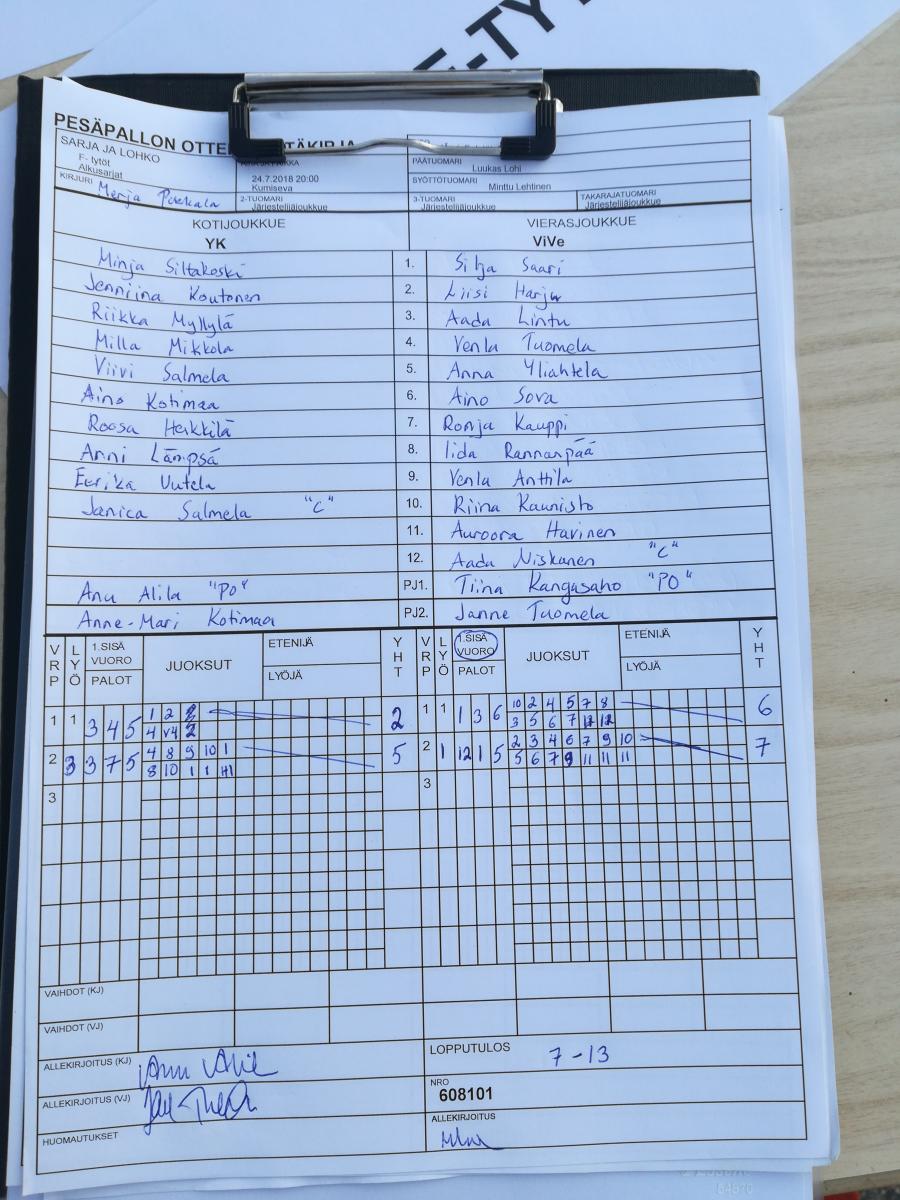 E-TY
PESÄPALLON OTTE
SARJA JA LOHKO
F- tytöt
Alkusarjat
24.7.2018 20:00
Kumiseva
PÄÄTUOMARI
Luukas Lohi
SYÖTTÖTUOMARI
Minttu Lehtinen
KIRJURI Merja
2-TUOMARI
Järjestelijäjoukkue
3-TUOMARI
Järjestelijäjoukkue
TAKARAJATUOMARI
KOTIJOUKKUE
YK
VIERASJOUKKUE
ViVe
Minja Siltakoski 1. Silja Saari
Jenniina Koutonen 2. Liisi Harju
Riikka Myllylä 3. Aada Lintu
Milla Mikkola 4. Venla Tuomela
Viivi Salmela 5. Anna Yliahtela
Aino Kotimaa 6. Aino Sova
Roosa Heikkilä 7. Ronja Kauppi
Anni Lämpsä 8. Iida Rannanpää
Eerika Uutela 9. Venla Anttila
Janica Salmela "C" 10. Riina Kaunisto
11. Auroora Havinen
12. Aada Niskanen "C"
Anu Alila "PO" PJ1. Tiina Kangasaho "PO"
Anne-Mari Kotimaa PJ2. Janne Tuomela
VRP LYÖ 1.SISÄ VUORO PALOT JUOKSUT ETENIJÄ LYÖJÄ YHT VRP LYÖ 1.SISÄ VUORO PALOT JUOKSUT ETENIJÄ LYÖJÄ YHT
1 1 3 4 5 1 2 2 1 1 1 3 6 10 2 4 5 7 8 6
4 3 5 6 7 12
2 3 3 7 5 4 8 9 10 1 5 2 1 12 1 5 2 3 4 6 7 9 10 7
8 10 1 1 5 6 7 9 11 11 11
3 3
VAIHDOT (KJ)
VAIHDOT (VJ)
ALLEKIRJOITUS (KJ)
LOPPUTULOS 7-13
ALLEKIRJOITUS (VJ)
NRO
608101
HUOMAUTUKSET
ALLEKIRJOITUS